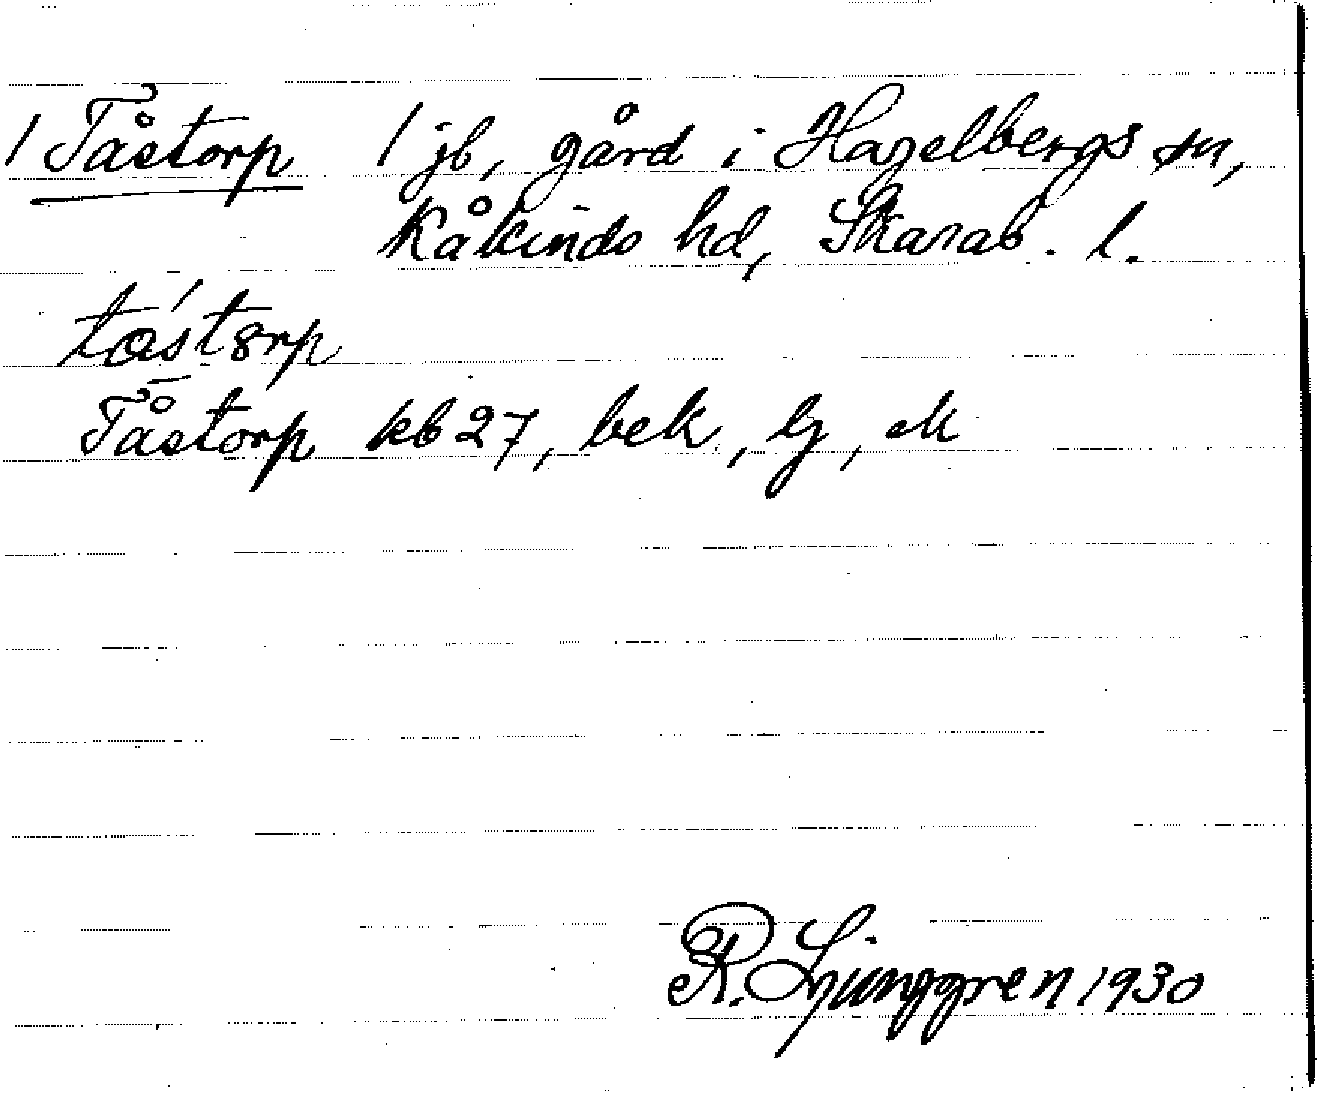 1 Tåstorp 1 jb, gård i Hagelbergs sn,
Kåkinds hd, Skarab. l.
Tåstorp kb 27, bek, lj, ek
R. Ljunggren 1930